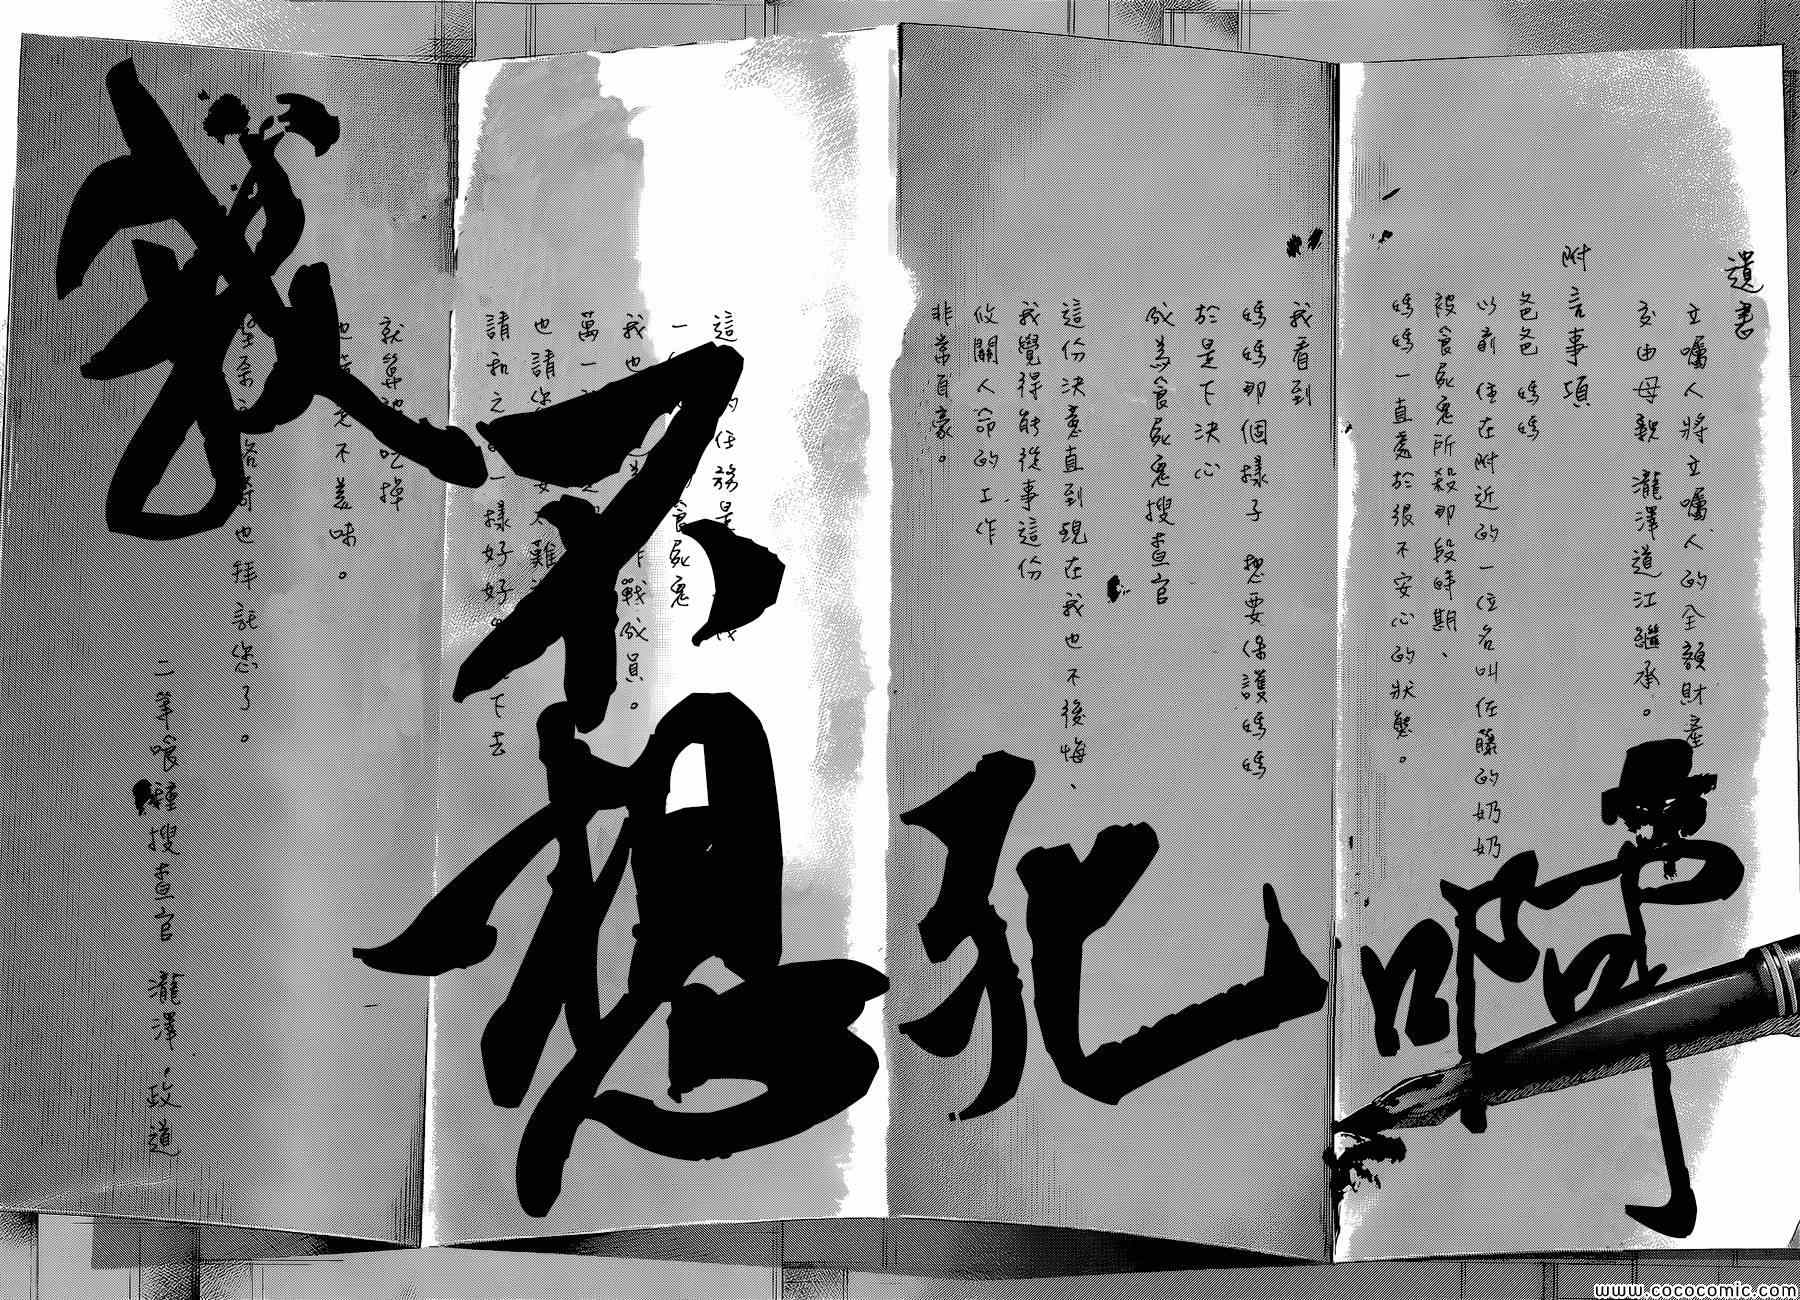 遺書
立囑人將立囑人的全額財產
交由母親 瀧澤道江繼承。
附言事項
爸爸 媽媽
以前住在附近的一位名叫佐藤的奶奶
被食屍鬼所殺那段時期、
媽媽一直處於很不安心的狀態。
我看到
媽媽那個樣子 想要保護媽媽
於是下決心
成為食屍鬼搜查官
這份決意直到現在我也不後悔、
我覺得能從事這份
攸關人命的工作
非常自豪。
這 的任務是
一 食屍鬼
我也 作戰成員。
萬一
也請
請和之 一樣好好 下去
就算被吃掉
也 不美味。
也拜託您了。
二等喰種搜查官 瀧澤政道
我不想死啊
www.cococomic.com